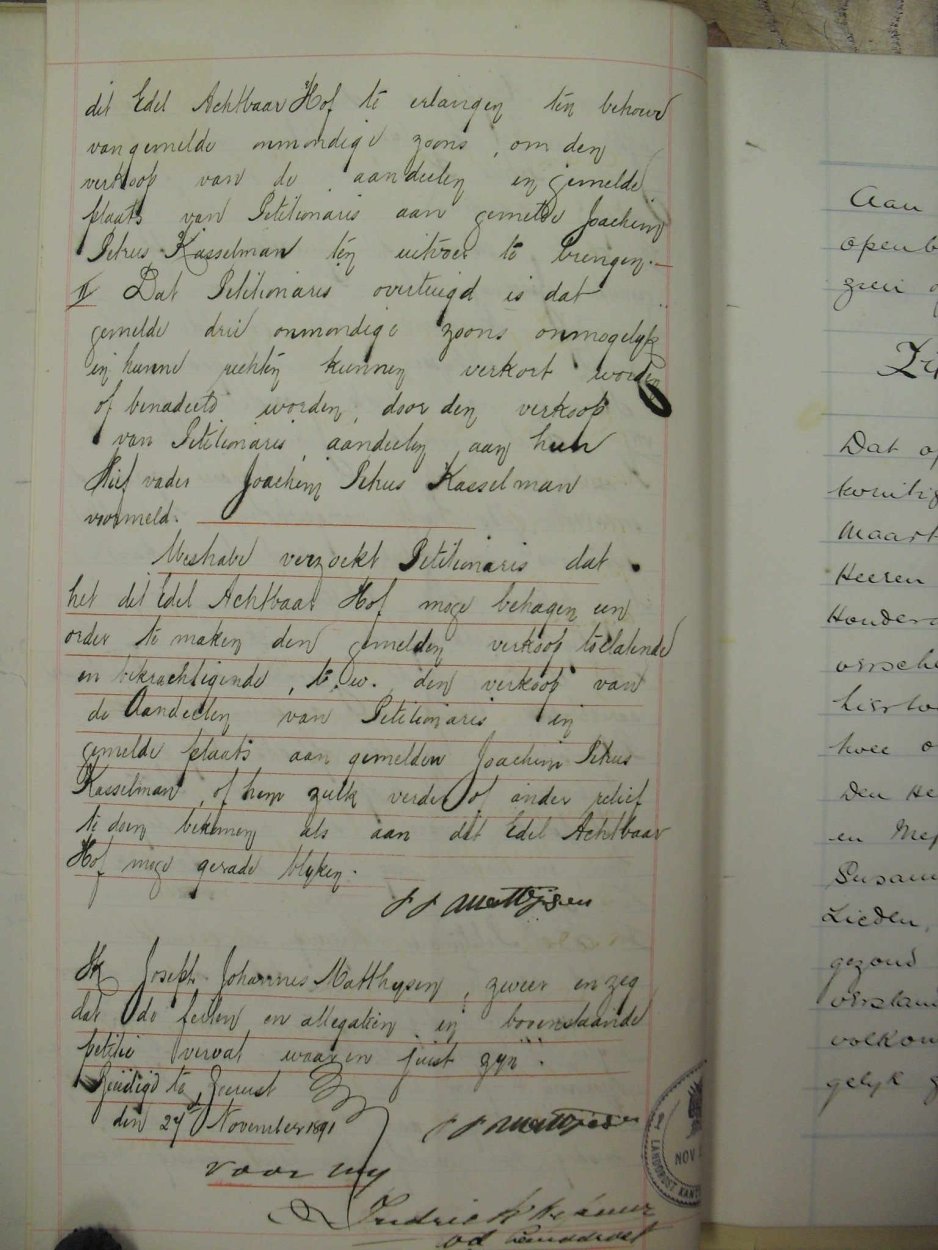 dit Edel Achtbaar Hof te erlangen ten behoeve
van gemelde onmondige zoons, om den
verkoop van de aandeelen in gemelde
plaats van Petitionaris aan gemelde Joachim
Petrus Kasselman ten uitvoer te brengen.
II Dat Petitionaris overtuigd is dat
gemelde drie onmondige zoons onmogelyk
in hunne rechten kunnen verkort worden
of benadeeld worden, door den verkoop
van Petitionaris aandeelen aan hun
Stief vader Joachim Petrus Kasselman
voormeld.
Weshalve verzoekt Petitionaris dat
het dit Edel Achtbaar Hof moge behagen een
order te maken den gemelden verkoop toelatende
en bekrachtigende, t. w. den verkoop van
de Aandeelen van Petitionaris in
gemelde plaats aan gemelden Joachim Petrus
Kasselman, of hem zulk verder of ander relief
te doen bekomen als aan dit Edel Achtbaar
Hof moge gerade blyken.
J J Matthysen
Ik Joseph Johannes Matthysen, zweer en zeg
dat de feiten en allegatien in bovenstaande
petitie vervat waar en juist zyn.
Beëdigd te Zeerust
den 27st November 1891
J J Matthysen
voor my
LANDDROST KANT
NOV
Aan
openb
Dat op
Maart
Heeren
Honderd
hierto
twee
Den He
en Mej
Susann
Lieden,
gezond
verstan
volkom
gelyk